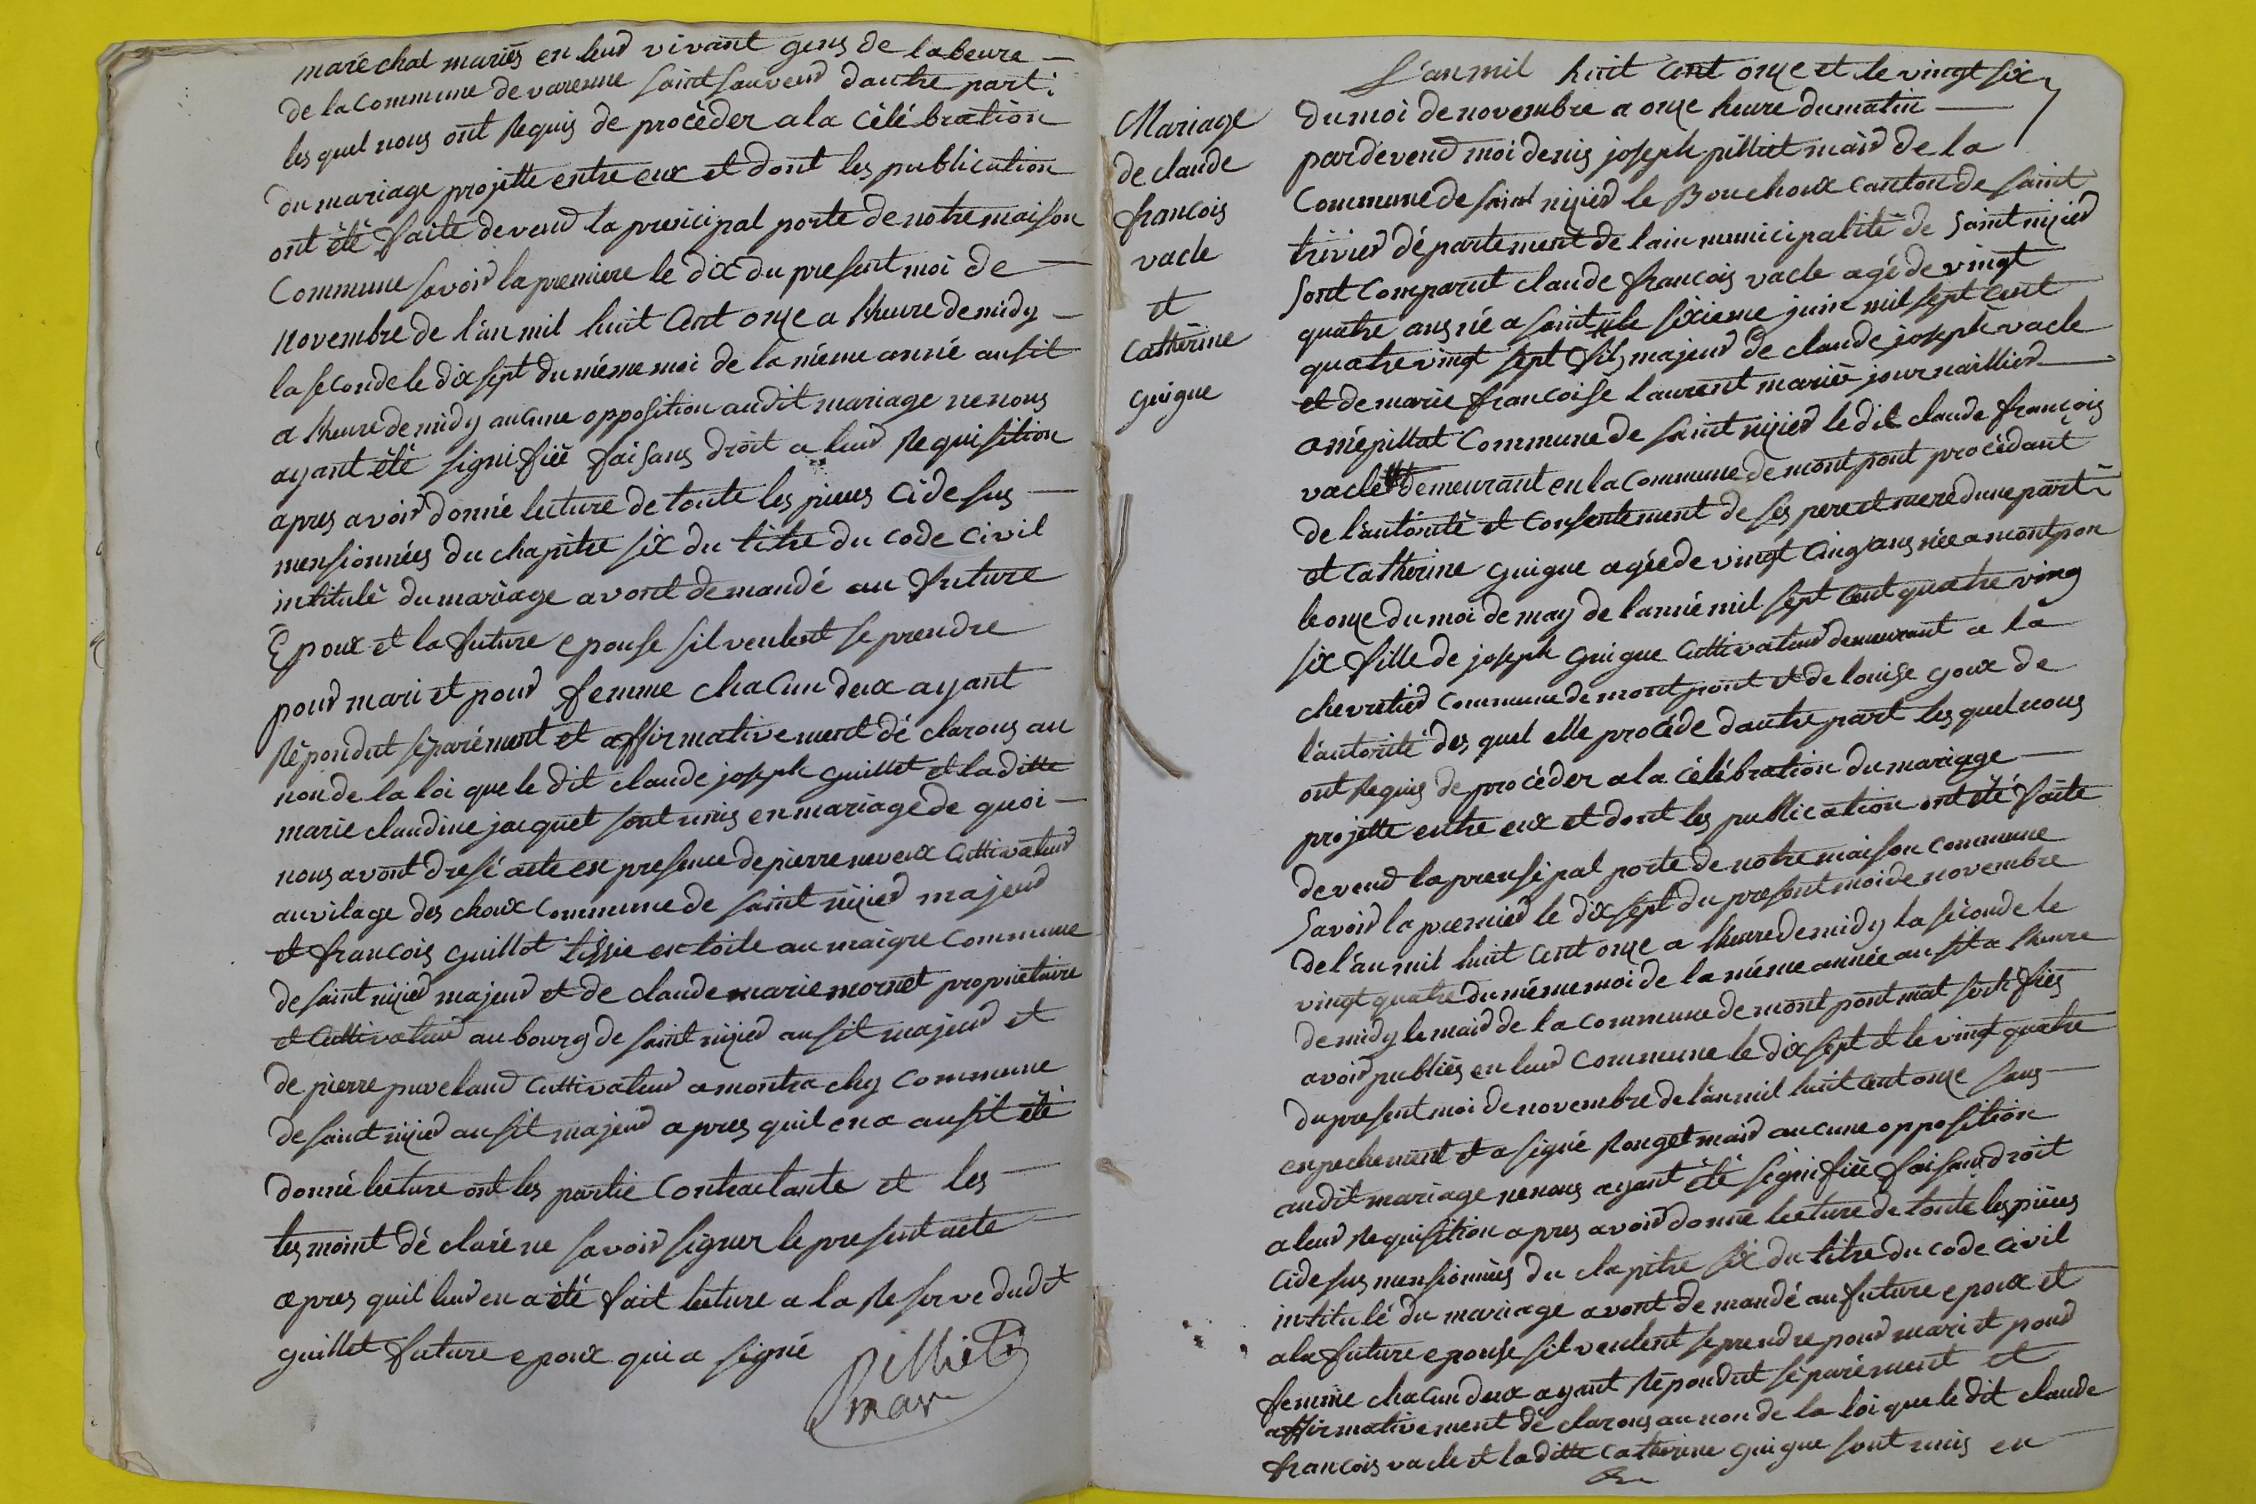 maréchal mariés en leur vivant gens de labeure
de la Commune de varenne saint sauveur dautre part
les quel nous ont Requis de procèder a la célébration
du mariage projette entre eux et dont les publication
ont été faite devend la prencipal porte de notre maison
Commune savoir la premiere le dix du present moi de
novembre de l'àn mil huit Cent onze a lheure de midy
la seconde le dix sept du méme moi de la méme anné ausit
a lheure de midy aucune opposition audit mariage ne nous
ayant été signifiée faisans droit a leur Requisition
apres avoir donné lecture de toute les pieces Cidesus
mensionnées du chapitre six du titre du code Civil
intitulé du mariage avont demandé au future
Epoux et la future epouse sil veulent se prendre
pour mari et pour femme chaCun deux ayant
Répondut séparément et affirmativement dé clarons au
non de la loi que le dit claude joseph guillet et la ditte
marie claudine jacquet sont unis en mariage de quoi
nous avont dresé acte en presence de pierre neveux Cultivateur
au vilage des choux Commune de saint nizier majeur
et francois guillot tissie en toile au maigre Commune
de saint nizier majeur et de claude marie mornet propriétaire
et Cultivateur au bourg de saint nizier ausit majeur et
de pierre puveland Cultivateur a montrachy Commune
de saint nizier ausit majeur apres quil en a ausit été
donné lecture ont les partie Contractante et les
tesmoint dé claré ne savoir signer le present acte
apres quil leur en a été fait lecture a la Reserve dudit
guillet future epoux qui a signé
Pilliet
mar
Mariage
de claude
francois
vacle
et
Catherine
guigue
L'an mil huit Cent onze et le vingt six
du moi de novembre a onze heure du matin
pardevend moi denis joseph pilliat mair de la
Commune de saint nizier le Bouchoux Canton de saint
trivier département de lain municipalité de Saint nizier
Sont Comparut claude francois vacle agé de vingt
quatre ans né a saint le sixieme juin mil sept Cent
quatre vingt sept fils majeur de claude joseph vacle
et de marie francoise laurent mariés journaillier
a mépillat Commune de saint nizier le dit claude francois
vacle demeurant en la Commune de montpont procédant
de l'autorité et Consentement de ses pere et mere dune part
et Catherine guigue agée de vingt Cinq ans née a montpon
le onze du moi de may de lanné mil sept Cent quatre ving
six fille de joseph guigue Cultivateur demeurant a la
chevretier Commune de montpont et de louise goux de
l'autorité des quel elle procéde dautre part les quel nous
ont Requis de procéder a la célébration du mariage
projette entre eux et dont les publication ont été faite
devend la prensépal porte de notre maison Commune
Savoir la premier le dix sept du present moi de novembre
de l'àn mil huit Cent onze a lheure de midy la séconde le
vingt quatre du méme moi de la méme année ausit a lheure
de midy le mair de la Commune de mont pont mat sertifies
avoir publiés en leur Commune le dix sept et le vingt quatre
du present moi de novembre de l'àn mil huit Cent onze sans
enpechement et a signé Rouget mair aucune opposition
audit mariage ne nous ayant été signifiée faisant droit
a leur Requisition apres avoir donné lecture de toute les pieces
Cidesus mensionnées du chapitre six du titre du code Civil
intitulé du mariage avont demandé au future epoux et
a la future epouse sil veulent se prendre pour mari et pour
femme chacun deux ayant Répondut séparément et
affirmativement dé clarons au non de la loi que le dit claude
francois vacle et la ditte Catherine guigue sont unis en